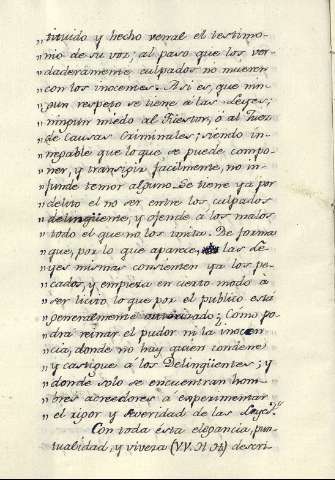 „ tituido y hecho venal el testimo-
„ nio de su voz; al paso que los ver-
„ daderamente culpados no mueren
„ con los inocentes. Asi es, que nin-
„ gun respeto se tiene a las Leyes;
„ ningun miedo al Questor, ó al Juez
„ de Causas Criminales; siendo in-
„ negable que lo que se puede compo-
„ ner, y transigir facilmente, no in-
„ funde temor alguno. Se tiene ya por
„ delito el no ser entre los culpados
„ delinqüente, y ofende á los malos
„ todo el que no los imita. De forma
„ que, por lo que aparece, las Le-
„ yes mismas consienten ya los pe-
„ cados, y empieza en cierto modo á
„ ser licito, lo que por el publico está
„ generalmente autorizado; Como po-
„ drá reinar el pudor ni la inocen-
„ cia, donde no hay quien condene
„ y castigue á los Delinqüentes; y
„ donde solo se encuentran hom-
„ bres acreedores a experimentar
„ el rigor y severidad de las Leyes."
Con toda esta elegancia, pun-
tualidad, y viveza (VV. H. H.) descri-